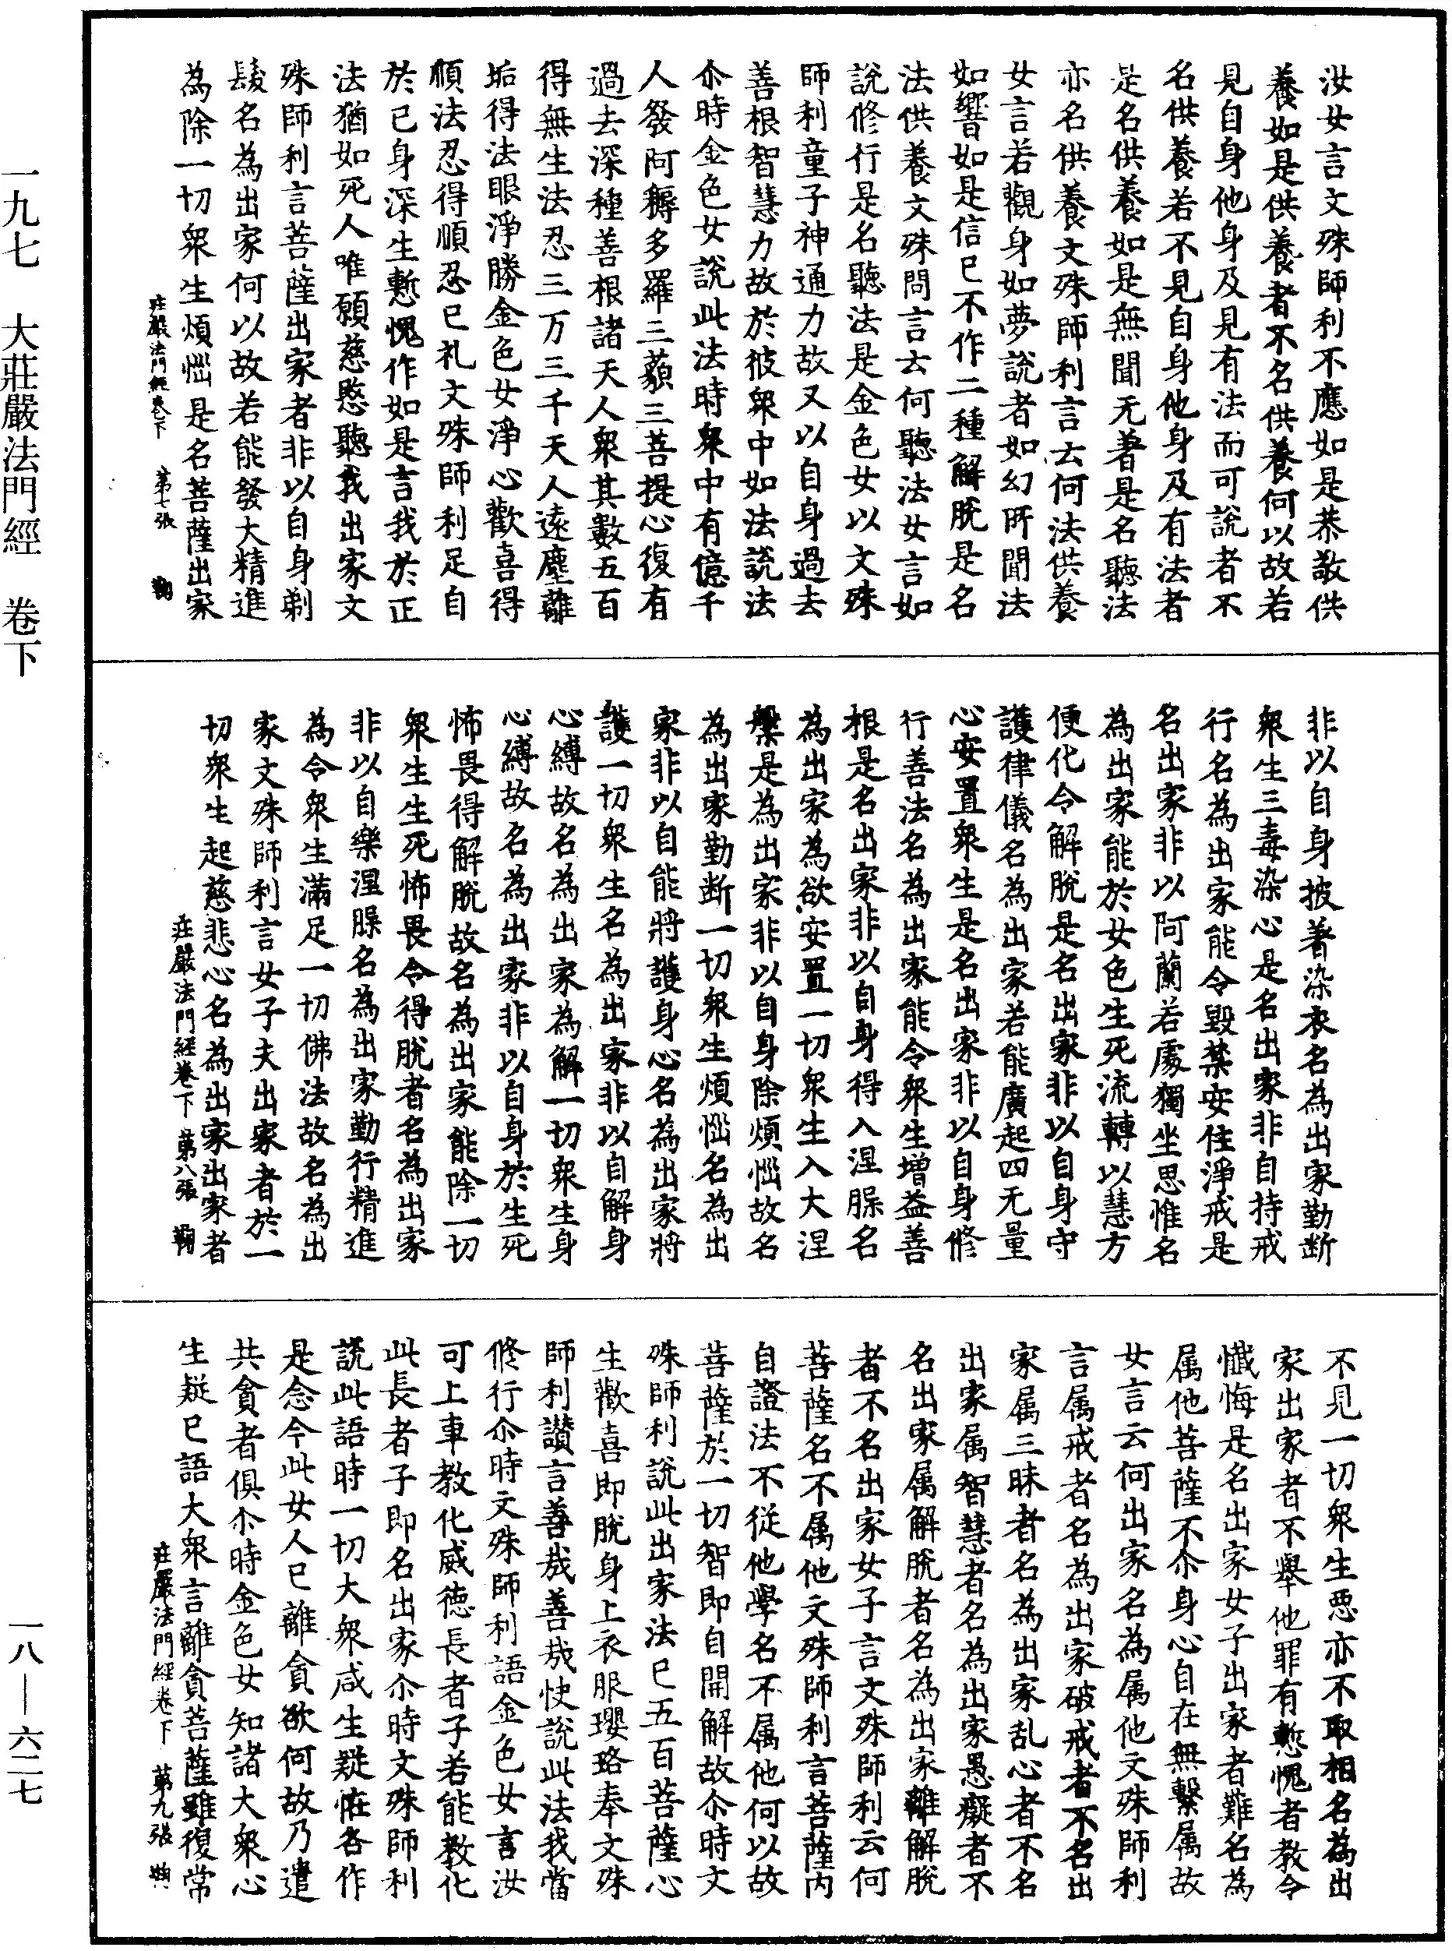 汝女言文殊師利不應如是恭敬供
養如是供養者不名供養何以故若
見自身他身及見有法而可說者不
名供養若不見自身他身及有法者
是名供養如是無聞无著是名聽法
亦名供養文殊師利言云何法供養
女言若觀身如夢說者如幻所聞法
如響如是信已不作二種解脫是名
法供養文殊問言云何聽法女言如
說修行是名聽法是金色女以文殊
師利童子神通力故又以自身過去
善根智慧力故於彼衆中如法說法
尒時金色女說此法時衆中有億千
人發阿耨多羅三藐三菩提心復有
過去深種善根諸天人衆其數五百
得無生法忍三万三千天人遠塵離
垢得法眼淨勝金色女淨心歡喜得
順法忍得順忍已礼文殊師利足自
於己身深生慙愧作如是言我於正
法猶如死人唯願慈愍聽我出家文
殊師利言菩薩出家者非以自身剃
髮名為出家何以故若能發大精進
為除一切衆生煩惱是名菩薩出家
莊嚴法門經卷下 第七張 鞠
非以自身披著染衣名為出家勤断
衆生三毒染心是名出家非自持戒
行名為出家能令毀禁安住淨戒是
名出家非以阿蘭若處獨坐思惟名
為出家能於女色生死流轉以慧方
便化令解脫是名出家非以自身守
護律儀名為出家若能廣起四无量
心安置衆生是名出家非以自身修
行善法名為出家能令衆生增益善
根是名出家非以自身得入涅槃名
為出家為欲安置一切衆生入大涅
槃是為出家非以自身除煩惱故名
為出家勤断一切衆生煩惱名為出
家非以自能將護身心名為出家將
護一切衆生名為出家非以自解身
心縛故名為出家為解一切衆生身
心縛故名為出家非以自身於生死
怖畏得解脫故名為出家能除一切
衆生生死怖畏令得脫者名為出家
非以自樂涅槃名為出家勤行精進
為令衆生滿足一切佛法故名為出
家文殊師利言女子夫出家者於一
切衆生起慈悲心名為出家出家者
莊嚴法門經卷下 第八張 鞠
不見一切衆生惡亦不取相名為出
家出家者不舉他罪有慙愧者教令
懺悔是名出家女子出家者難名為
属他菩薩不尒身心自在無繫属故
女言云何出家名為属他文殊師利
言属戒者名為出家破戒者不名出
家属三昧者名為出家乱心者不名
出家属智慧者名為出家愚癡者不
名出家属解脫者名為出家離解脫
者不名出家女子言文殊師利云何
菩薩名不属他文殊師利言菩薩內
自證法不從他學名不属他何以故
菩薩於一切智即自開解故尒時文
殊師利說此出家法已五百菩薩心
生歡喜即脫身上衣服瓔珞奉文殊
師利讚言善哉善哉快說此法我當
修行尒時文殊師利語金色女言汝
可上車教化威德長者子若能教化
此長者子即名出家尒時文殊師利
說此語時一切大衆咸生疑怪各作
是念今此女人已離貪欲何故乃遣
共貪者俱尒時金色女知諸大衆心
生疑已語大衆言離貪菩薩雖復常
莊嚴法門經卷下 第九張 鞠
一九七 大莊嚴法門經 卷下
一八—六二七